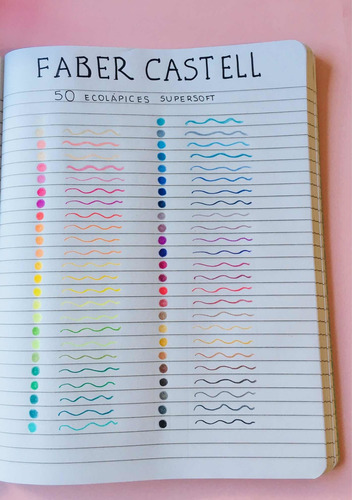 FABER CASTELL
50 ECOLÁPICES SUPERSOFT